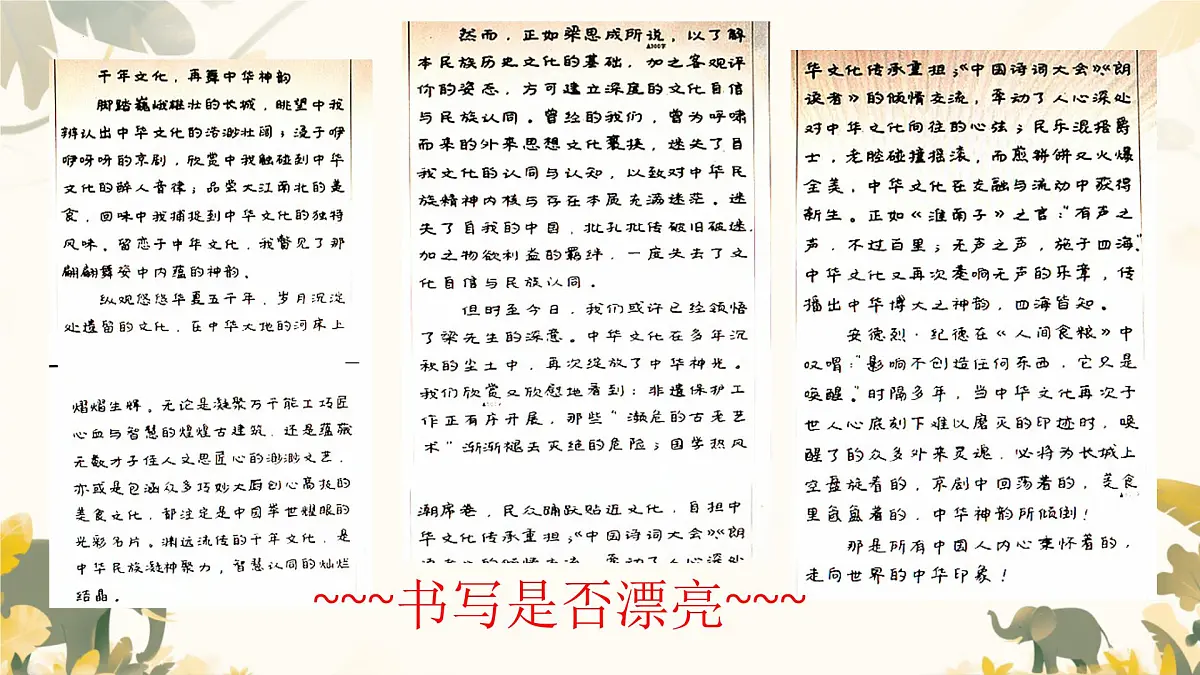 千年文化，再舞中华神韵
脚踏巍峨雄壮的长城，眺望中我
辨认出中华文化的浩渺壮阔；漫子咿
咿呀呀的京剧，欣赏中我触碰到中华
文化的醉人音律；品尝大江南北的美
食，回味中我捕捉到中华文化的独特
风味。留恋于中华文化，我瞥见了那
翩翩舞姿中内蕴的神韵。
纵观悠悠华夏五千年，岁月沉淀
处遗留的文化，在中华大地的河床上
熠熠生辉。无论是凝聚万千能工巧匠
心血与智慧的煌煌古建筑，还是蕴藏
无数才子佳人文思匠心的渺渺文艺，
亦或是包涵众多巧妙大厨创心高技的
美食文化，都注定是中国举世耀眼的
光彩名片。渊远流传的千年文化，是
中华民族凝神聚力，智慧认同的灿烂
结晶。
然而，正如梁思成所说，以了解
本民族历史文化的基础，加之客观评
价的姿态，方可建立深度的文化自信
与民族认同。曾经的我们，曾为呼啸
而来的外来思想文化裹挟，迷失了自
我文化的认同与认知，以致对中华民
族精神内核与存在本质充满迷茫。迷
失了自我的中国，批孔批传破旧破迷，
加之物欲利益的羁绊，一度失去了文
化自信与民族认同。
但时至今日，我们或许已经领悟
了梁先生的深意。中华文化在多年沉
积的尘土中，再次绽放了中华神光。
我们欣赏又欣慰地看到：非遗保护工
作正有序开展，那些“濒危的古老艺
术”渐渐褪去灭绝的危险；国学热风
潮席卷，民众踊跃贴近文化，自担中
华文化传承重担；《中国诗词大会》《朗
读者》的倾情交流，牵动了人心深处
华文化传承重担；《中国诗词大会》《朗
读者》的倾情交流，牵动了人心深处
对中华文化向往的心弦；民乐混搭爵
士，老腔碰撞摇滚，而煎饼饼又火爆
全美，中华文化在交融与流动中获得
新生。正如《淮南子》之言：“有声之
声，不过百里；无声之声，施于四海。”
中华文化又再次奏响无声的乐章，传
播出中华博大之神韵，四海皆知。
安德烈·纪德在《人间食粮》中
叹喟：“影响不创造任何东西，它只是
唤醒。”时隔多年，当中华文化再次于
世人心底刻下难以磨灭的印迹时，唤
醒了的众多外来灵魂，必将为长城上
空盘旋着的，京剧中回荡着的，美食
里氤氲着的，中华神韵所倾倒！
那是所有中国人内心秉怀着的，
走向世界的中华印象！
~~~书写是否漂亮~~~